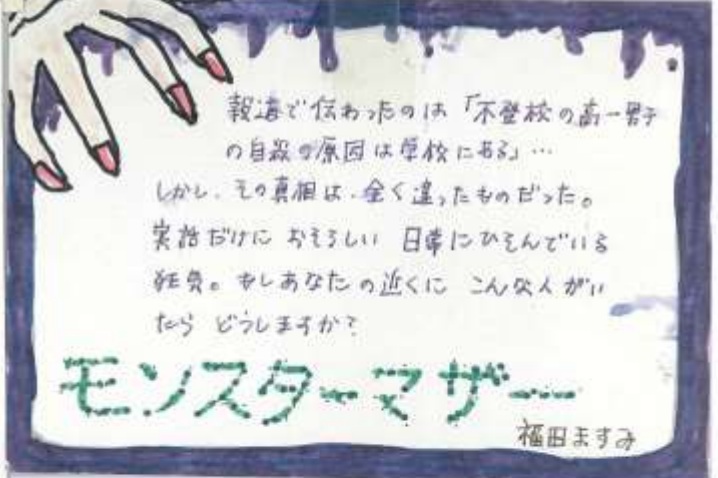 報道で伝わったのは「不登校の高一男子
の自殺の原因は学校にある」…
しかし、その真相は、全く違ったものだった。
実話だけに おそろしい 日常にひそんでいる
狂気。もしあなたの近くに こんな人がい
たら どうしますか？
モンスターマザー
福田ますみ